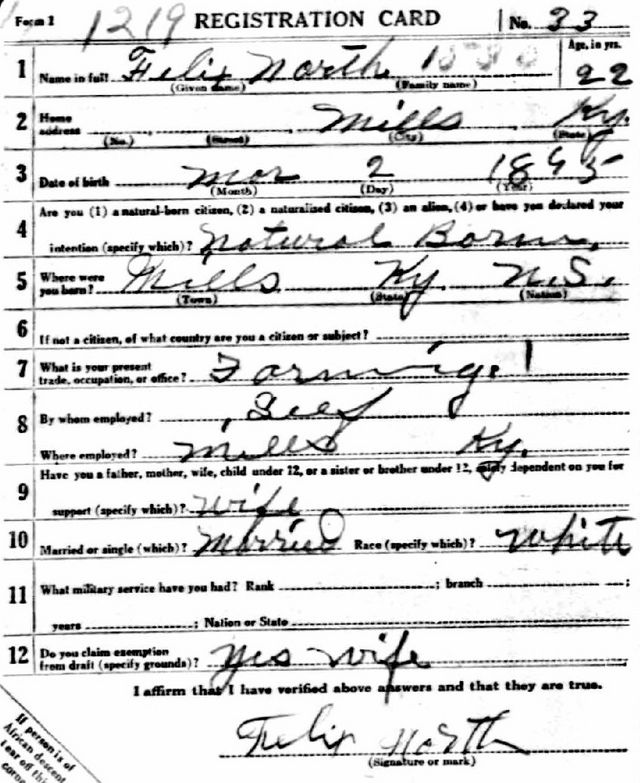 Form 1 1219 REGISTRATION CARD No. 33
Age, in yrs.
1 Name in full Felix North 22
(Given name) (Family name)
2 Home address Mills Ky.
(No.) (Street) (City) (State)
3 Date of birth Mar 2 1895
(Month) (Day) (Year)
Are you (1) a natural-born citizen, (2) a naturalized citizen, (3) an alien, (4) or have you declared your
4 intention (specify which)? Natural Born.
5 Where were you born? Mills Ky N.S.
(Town) (State) (Nation)
6 If not a citizen, of what country are you a citizen or subject?
7 What is your present trade, occupation, or office? Farming.
8 By whom employed? Self
Where employed? Mills Ky.
Have you a father, mother, wife, child under 12, or a sister or brother under 12, solely dependent on you for
9 support (specify which)? Wife
10 Married or single (which)? Married Race (specify which)? White
11 What military service have you had? Rank ; branch ;
years ; Nation or State
12 Do you claim exemption from draft (specify grounds)? Yes Wife
I affirm that I have verified above answers and that they are true.
Felix North
(Signature or mark)
If person is of
African descent
tear off this
corner